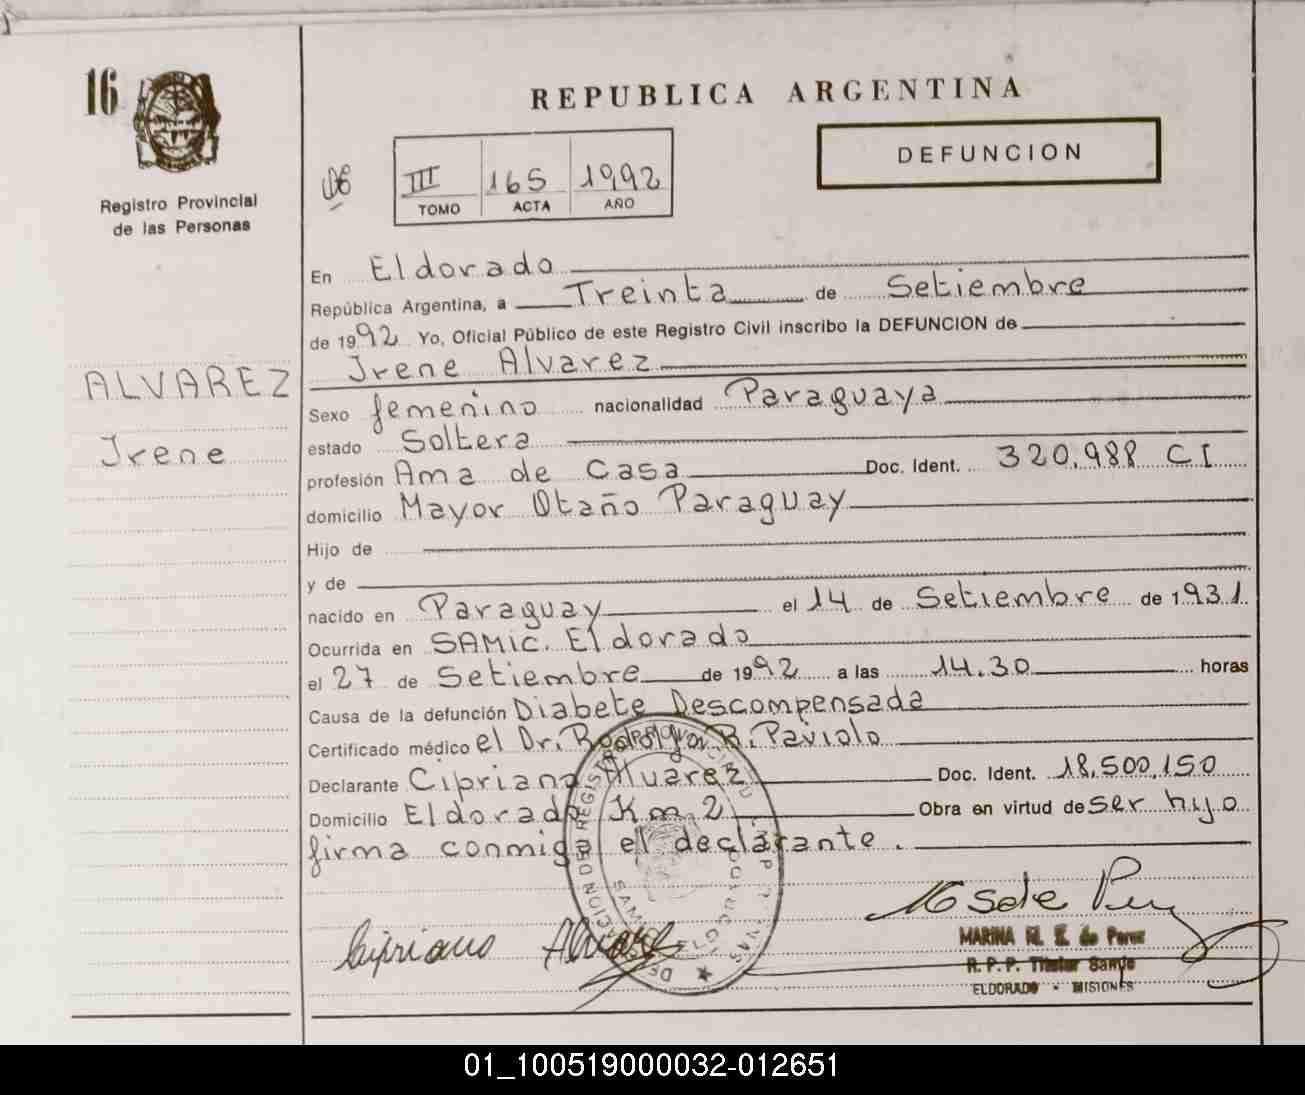 16
Registro Provincial
de las Personas
REPUBLICA ARGENTINA
DEFUNCION
III 165 1992
TOMO ACTA AÑO
En Eldorado
República Argentina, a Treinta de Setiembre
de 1992 Yo, Oficial Público de este Registro Civil inscribo la DEFUNCION de
Irene Alvarez
ALVAREZ
Irene
Sexo femenino nacionalidad Paraguaya
estado Soltera
profesión Ama de Casa Doc. Ident. 320.988 CI
domicilio Mayor Otaño Paraguay
Hijo de
y de
nacido en Paraguay el 14 de Setiembre de 1931
Ocurrida en SAMIC. Eldorado
el 27 de Setiembre de 1992 a las 14.30 horas
Causa de la defunción Diabete Descompensada
Certificado médico el Dr. Rodolfo R. Paviolo
Declarante Cipriano Alvarez Doc. Ident. 18.500.150
Domicilio Eldorado Km. 2 Obra en virtud de ser hijo
firma conmigo el declarante.
Cipriano Alvarez
MARINA M. S. de Perez
R. P. P. Titular
ELDORADO - MISIONES
01_100519000032-012651